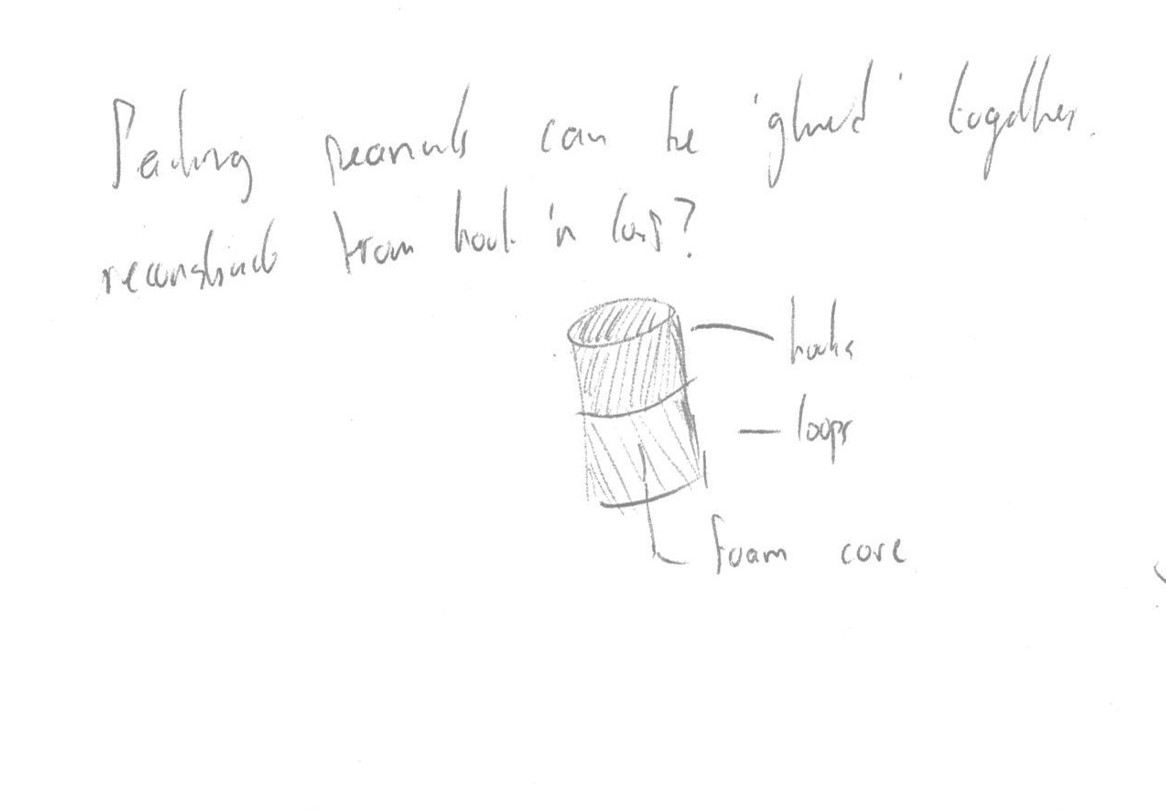 Packing peanuts can be 'glued' together.
reconstruct from hook 'n loop?
hooks
loops
foam core